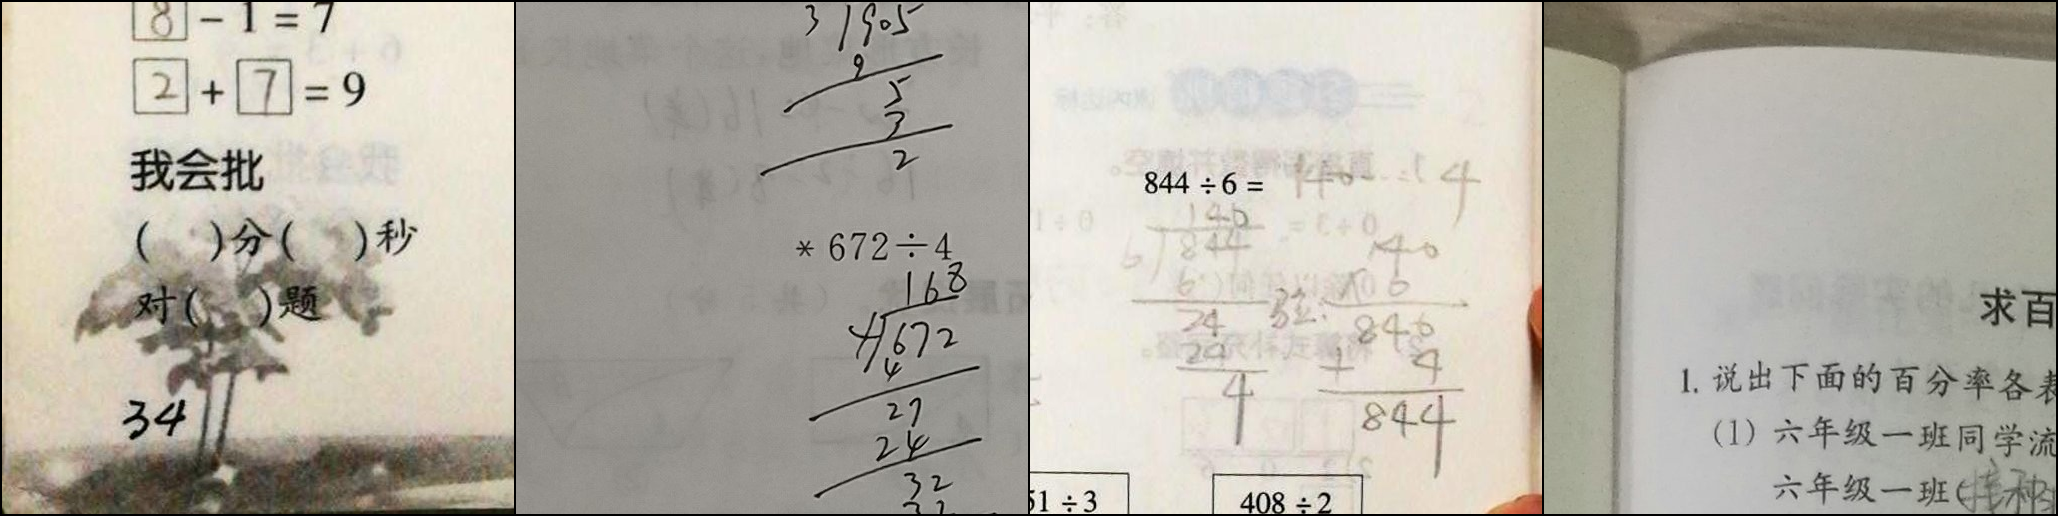 8 - 1 = 7
2 + 7 = 9
我会批
( )分( )秒
对( )题
34
3 1905
9
5
3
2
* 672÷4
168
4 672
4
27
24
32
32
844÷6= 140 4
140
6 844
6
24
24
4
验:
140
× 6
840
+ 4
844
51÷3
408÷2
求百
1. 说出下面的百分率各表
(1) 六年级一班同学流
六年级一班(接种